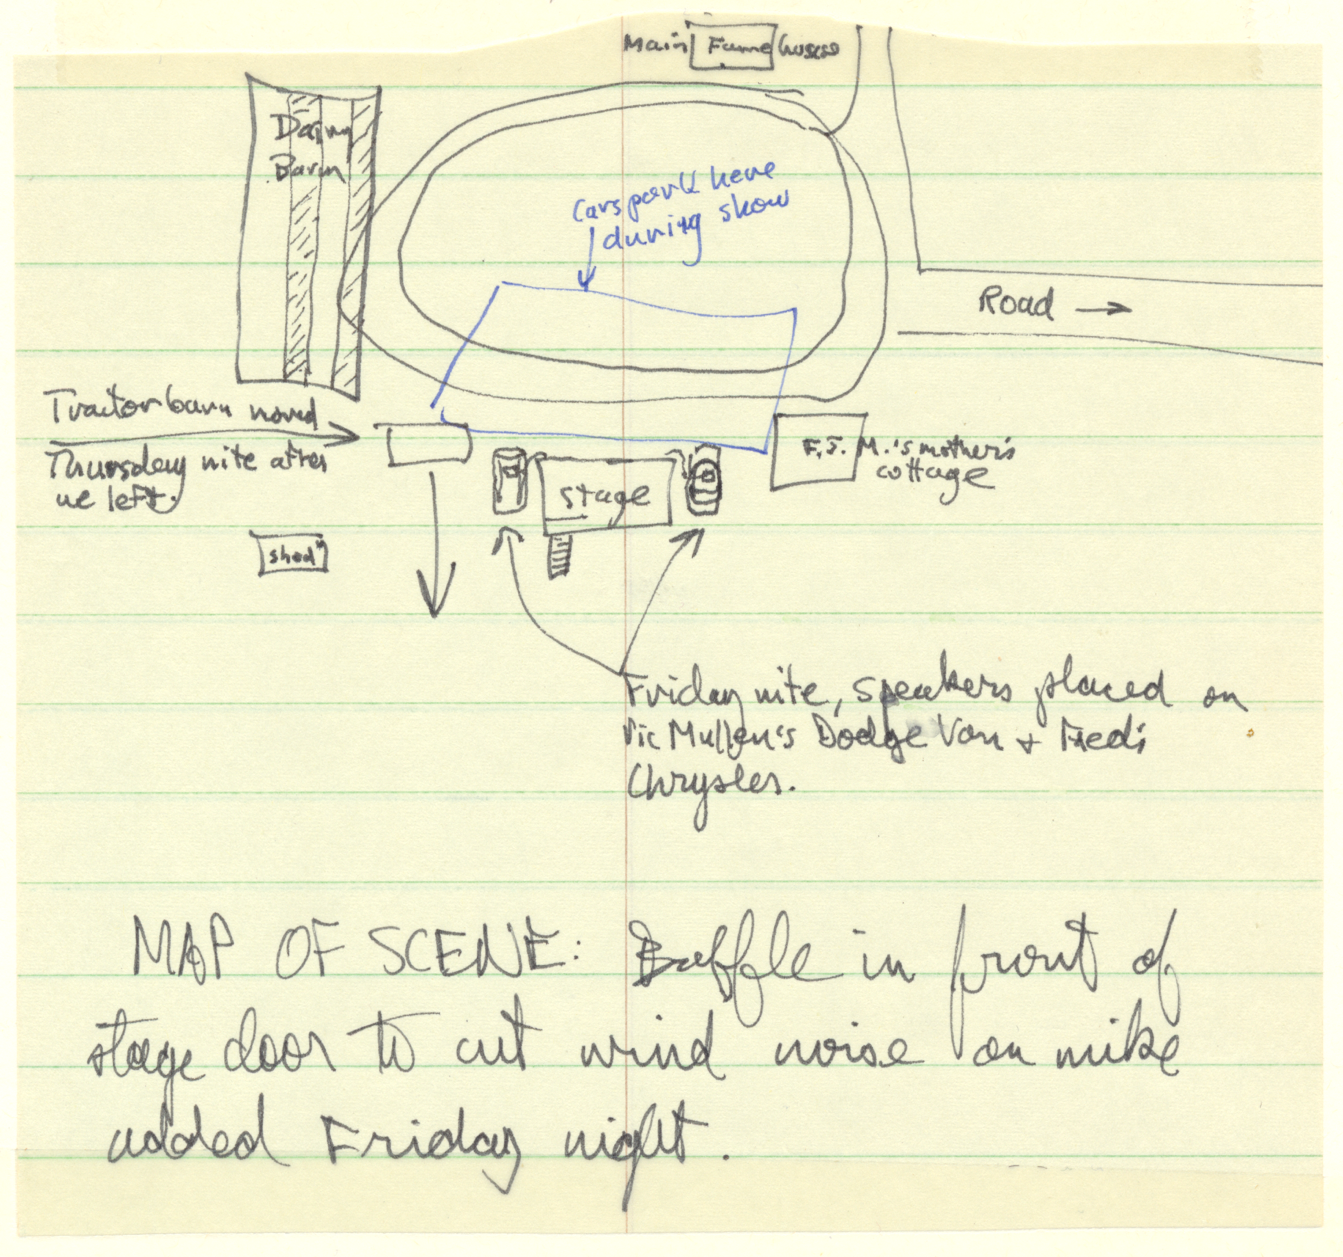 Main Farme house
Dairy
Barn
Cars park here
during show
Road →
Tractor barn moved
Thursday nite after
we left.
F.J. M.'s mother's
cottage
stage
shed
Friday nite, speakers placed on
Vic Mullen's Dodge Van + Fred's
Chrysler.
MAP OF SCENE: Baffle in front of
stage door to cut wind noise on mike
added Friday night.